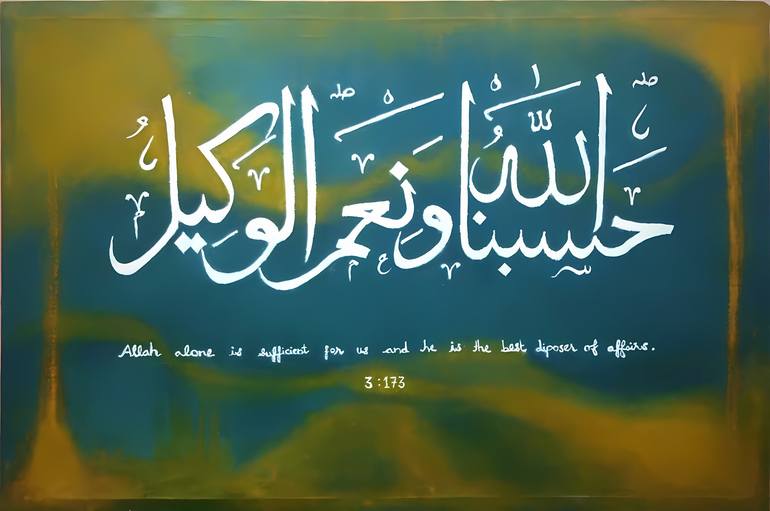 حسبنا الله ونعم الوكيل
Allah alone is sufficient for us and he is the best diposer of affairs.
3:173